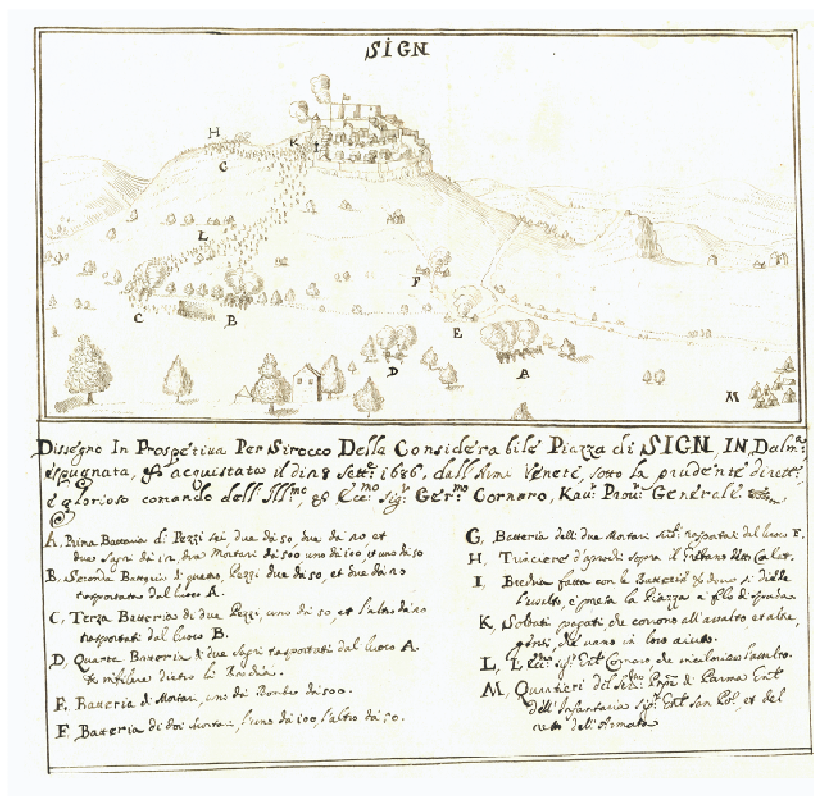 SIGN
H
K I
G
L
F
C
B
E
D
A
M
Dissegno In Prospetiva Per Sirocco Della Considerabile Piazza di SIGN, IN Dalm.ª
espugnata, & acquistata il di 28 Sett.e 1686, dall'Armi Venete, sotto la prudente dirett.e
è glorioso comando dell'Ill.mo, & Ecc.mo Sig.r Ger.mo Cornero, Kau.r Prou.r Generale
A, Prima Battaria di Pezzi sei due da 50, due da 20 et
due Sagri da 12, due Mortari da 500 uno da 200, et uno da 50
B, Seconda Batteria di quatro Pezzi due da 50, et due da 20
trasportata dal luoco A.
C, Terza Batteria di due Pezzi, uno da 50, et l'altro da 20
trasportati dal luoco B.
D, Quarta Batteria di due Sagri trasportati dal luoco A.
E, Batteria di Mortari, uno da Bombe da 500.
F, Batteria di doi Mortari, l'uno da 200, l'altro da 50.
G, Batteria delli due Mortari trasportati dal luoco F.
H, Trinciere d'approcci sopra il
I, Brechia fatta con le Batterie
l'assalto, e presa la Piazza a filo di spada.
K, Soldati pagati, che corrono all'assalto et altre
genti, che vanno in loro aiuto.
L, Cornero, che l'assalto.
M, Quartieri del di Parma
dell'Infantaria Sig.r San Pol, et del
resto dell'Armata